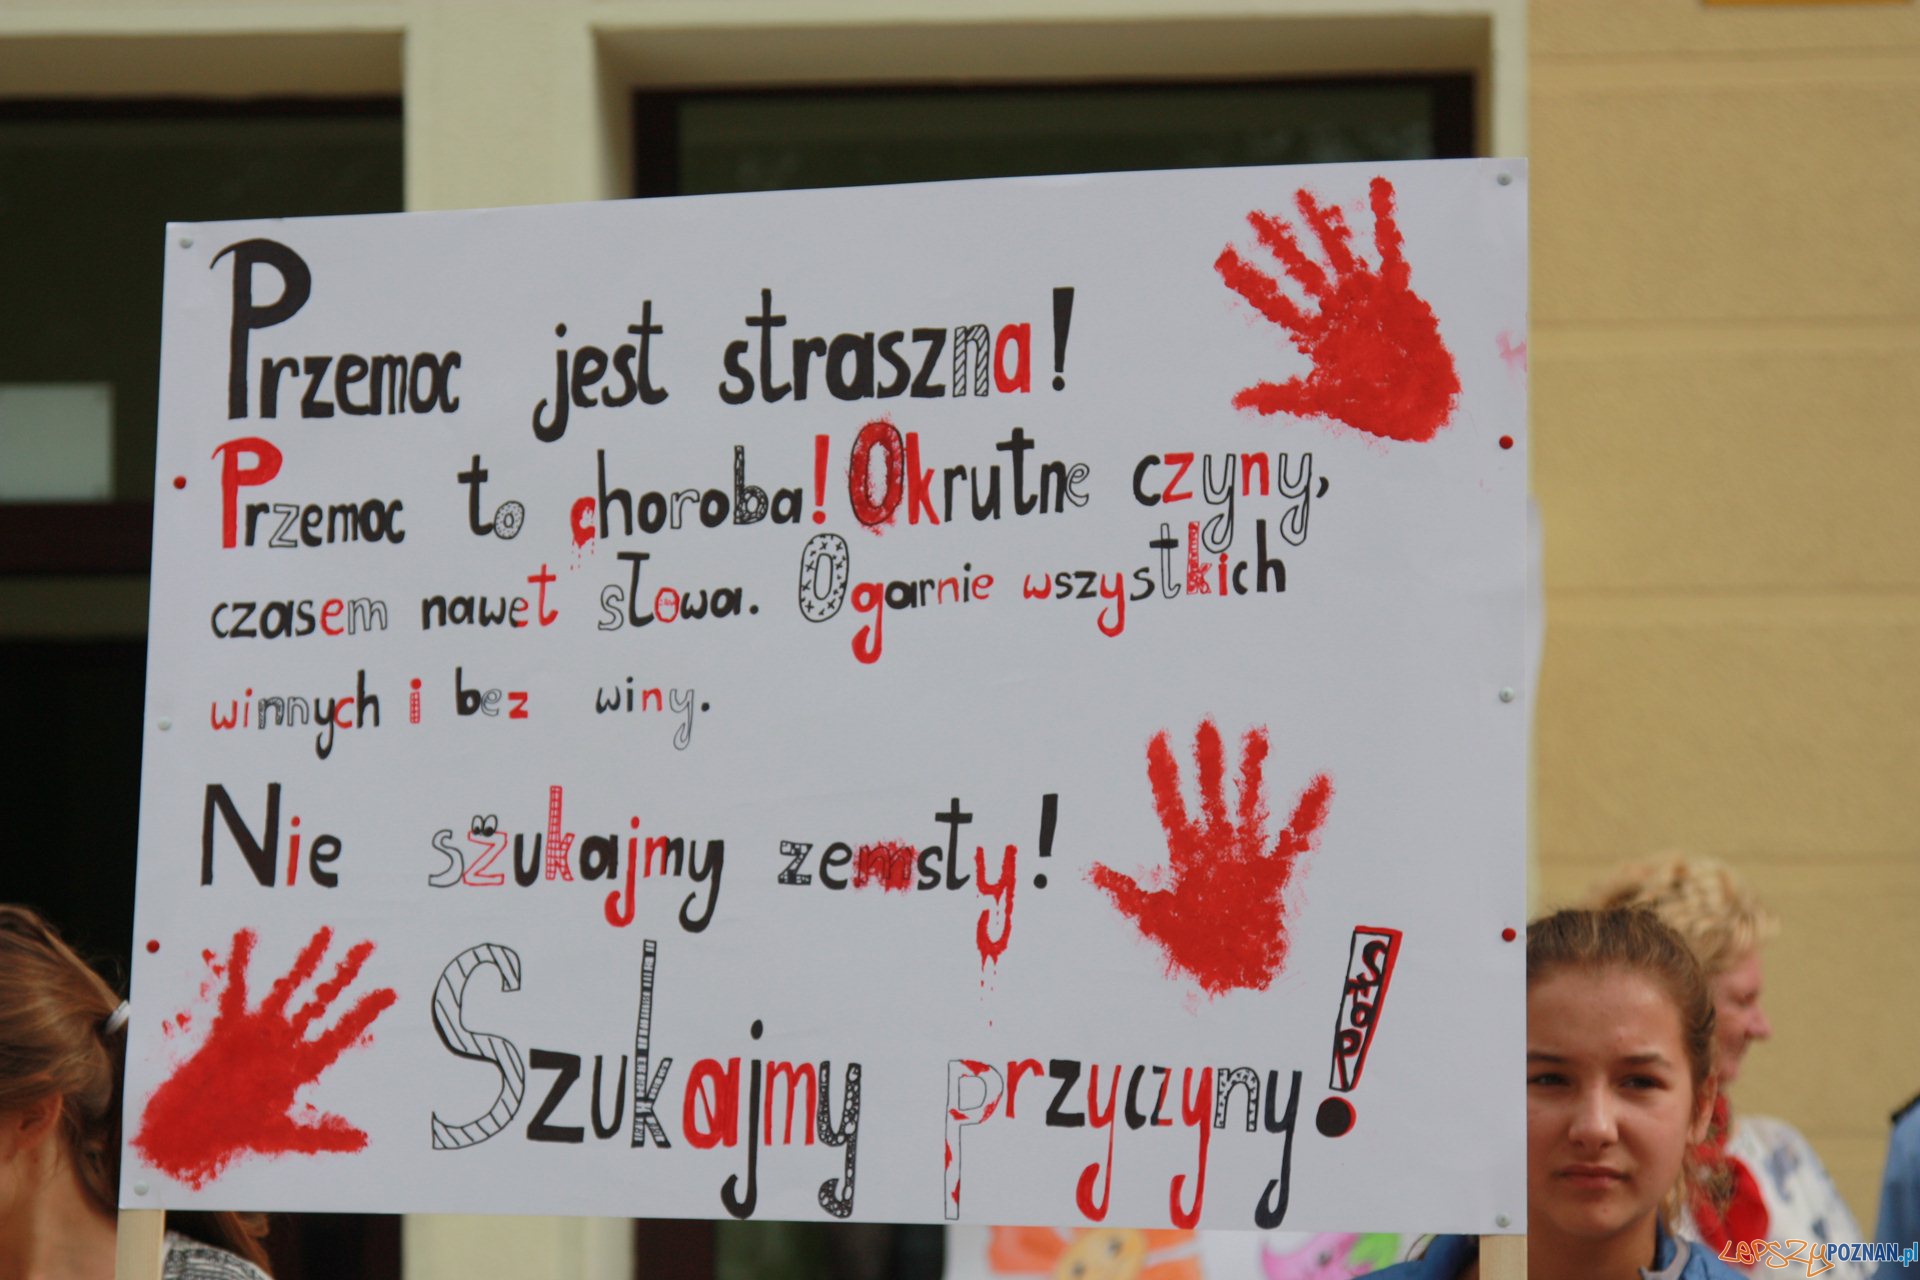 Przemoc jest straszna!
Przemoc to choroba! Okrutne czyny,
czasem nawet słowa. Ogarnie wszystkich
winnych i bez winy.
Nie szukajmy zemsty!
Szukajmy przyczyny!
Stop
LEPSZYPOZNAN.pl